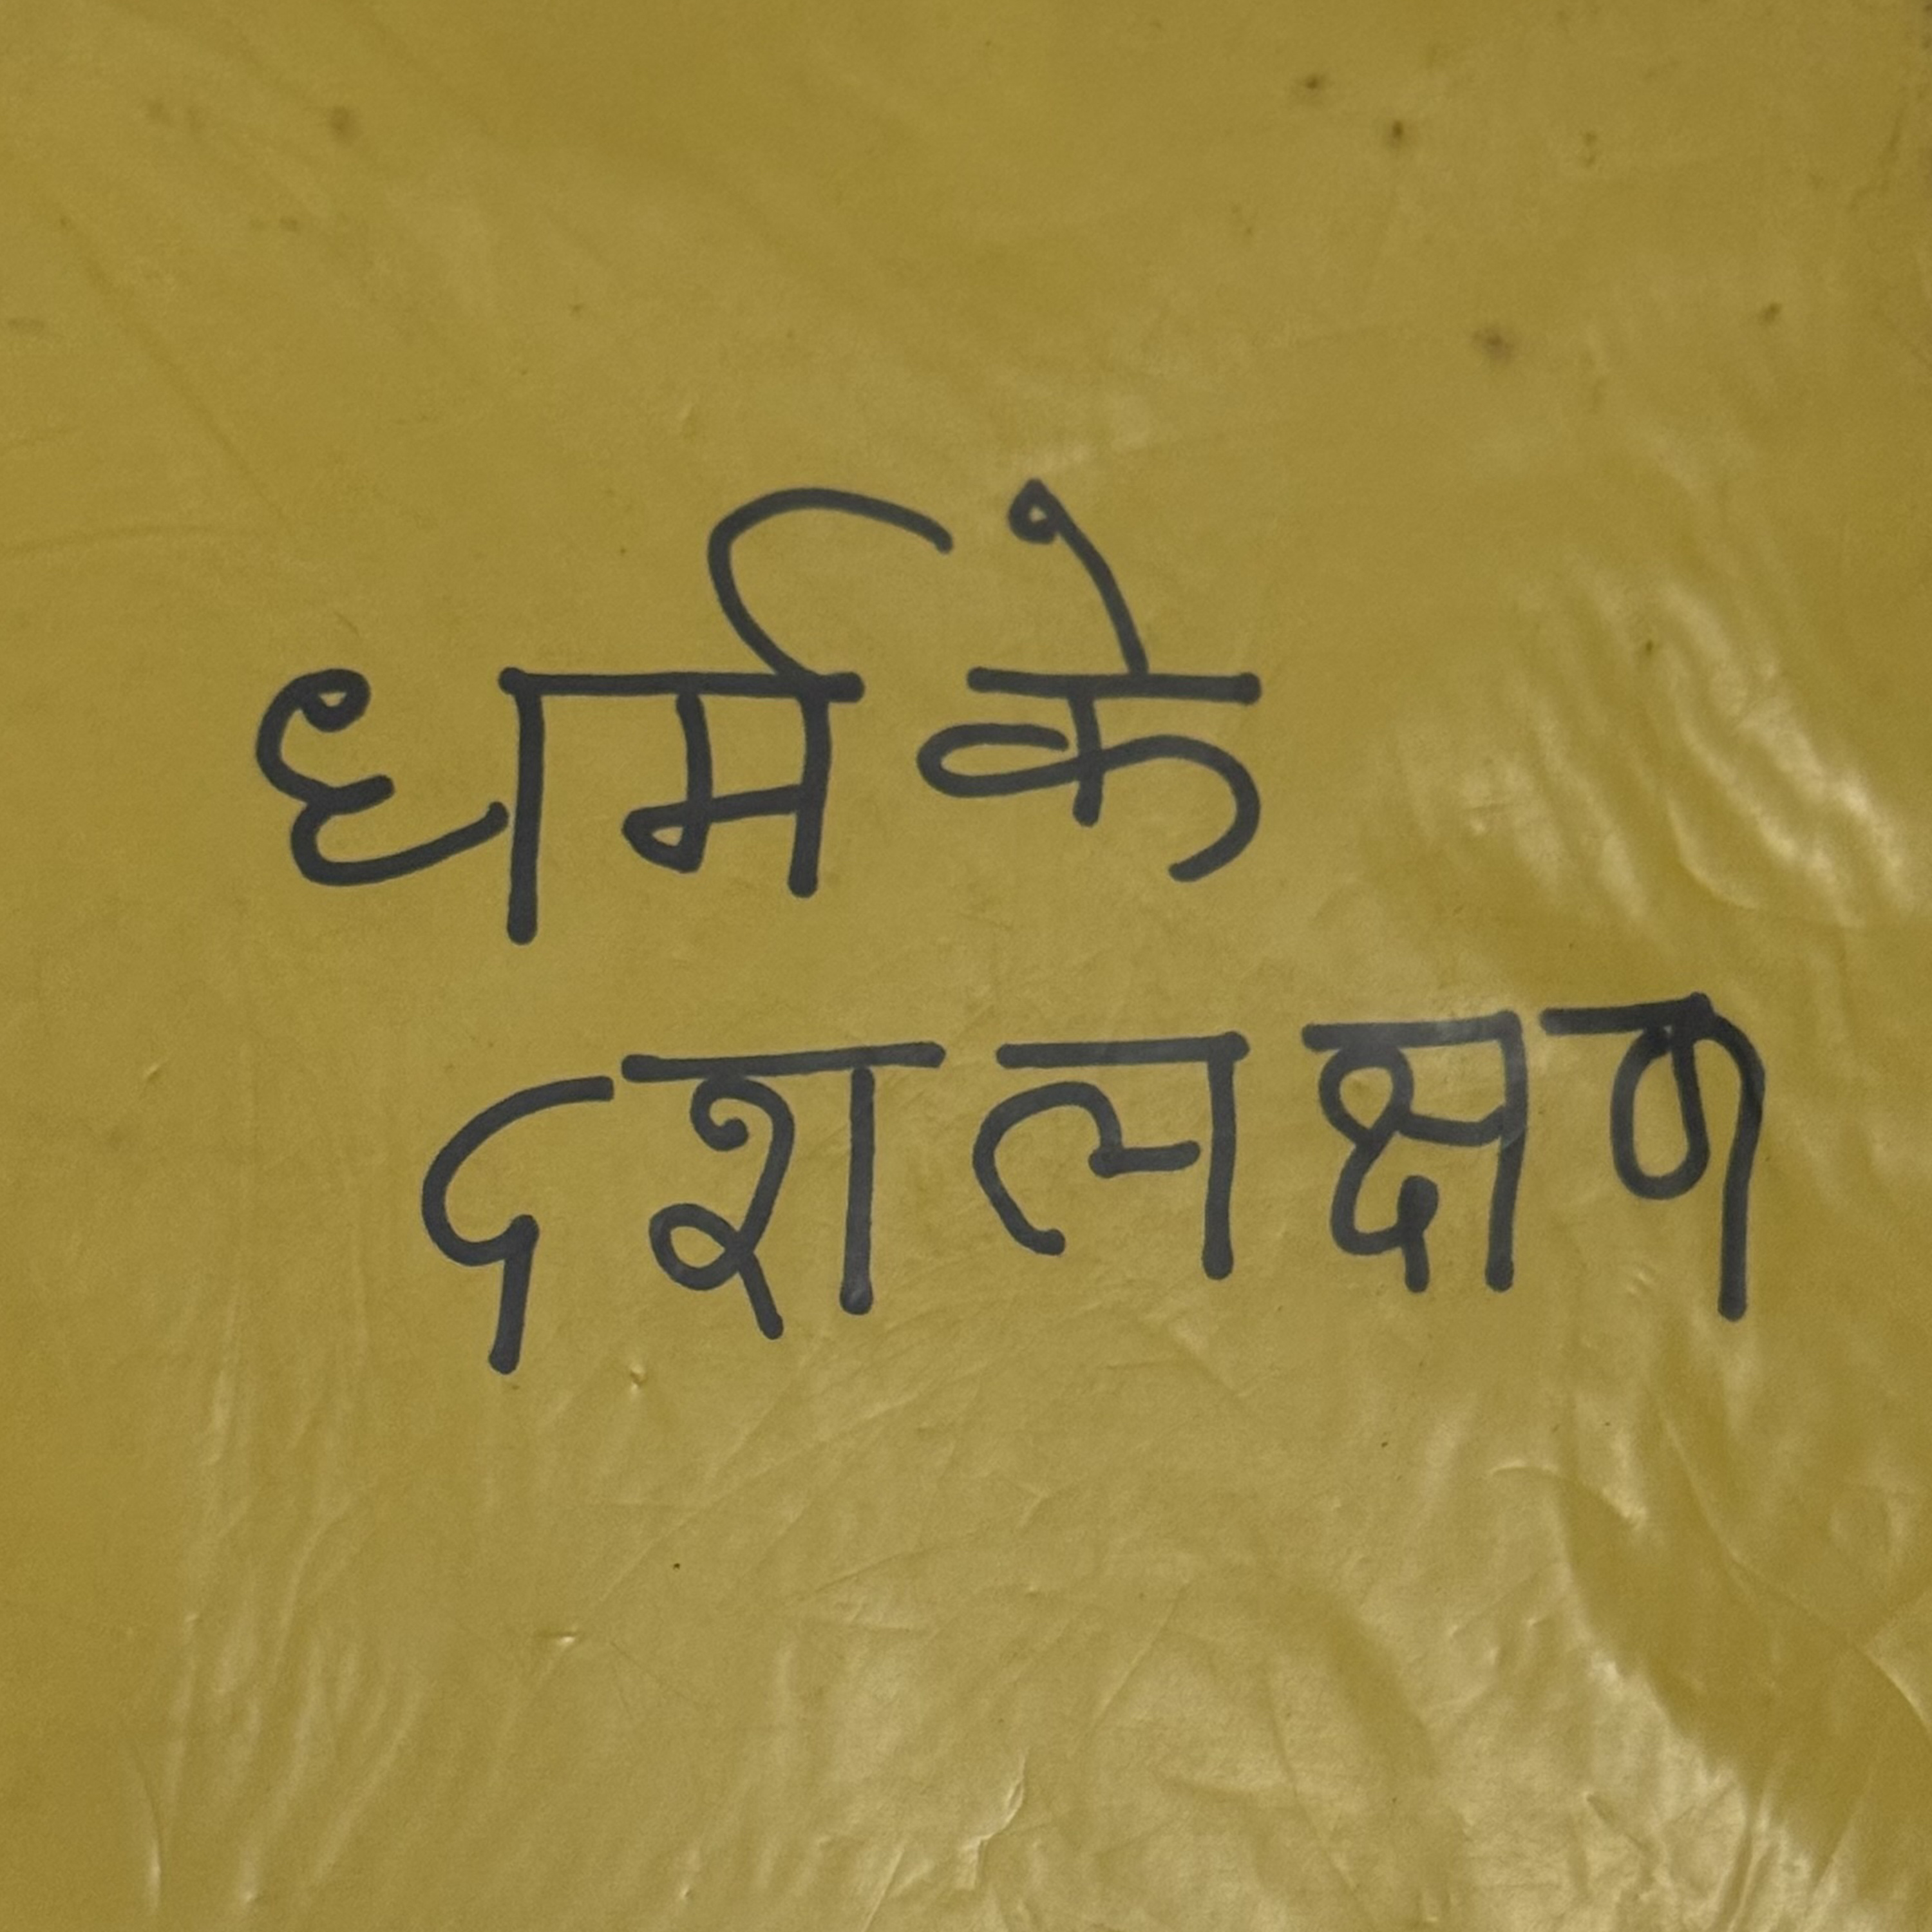 धर्म के
दश लक्षण